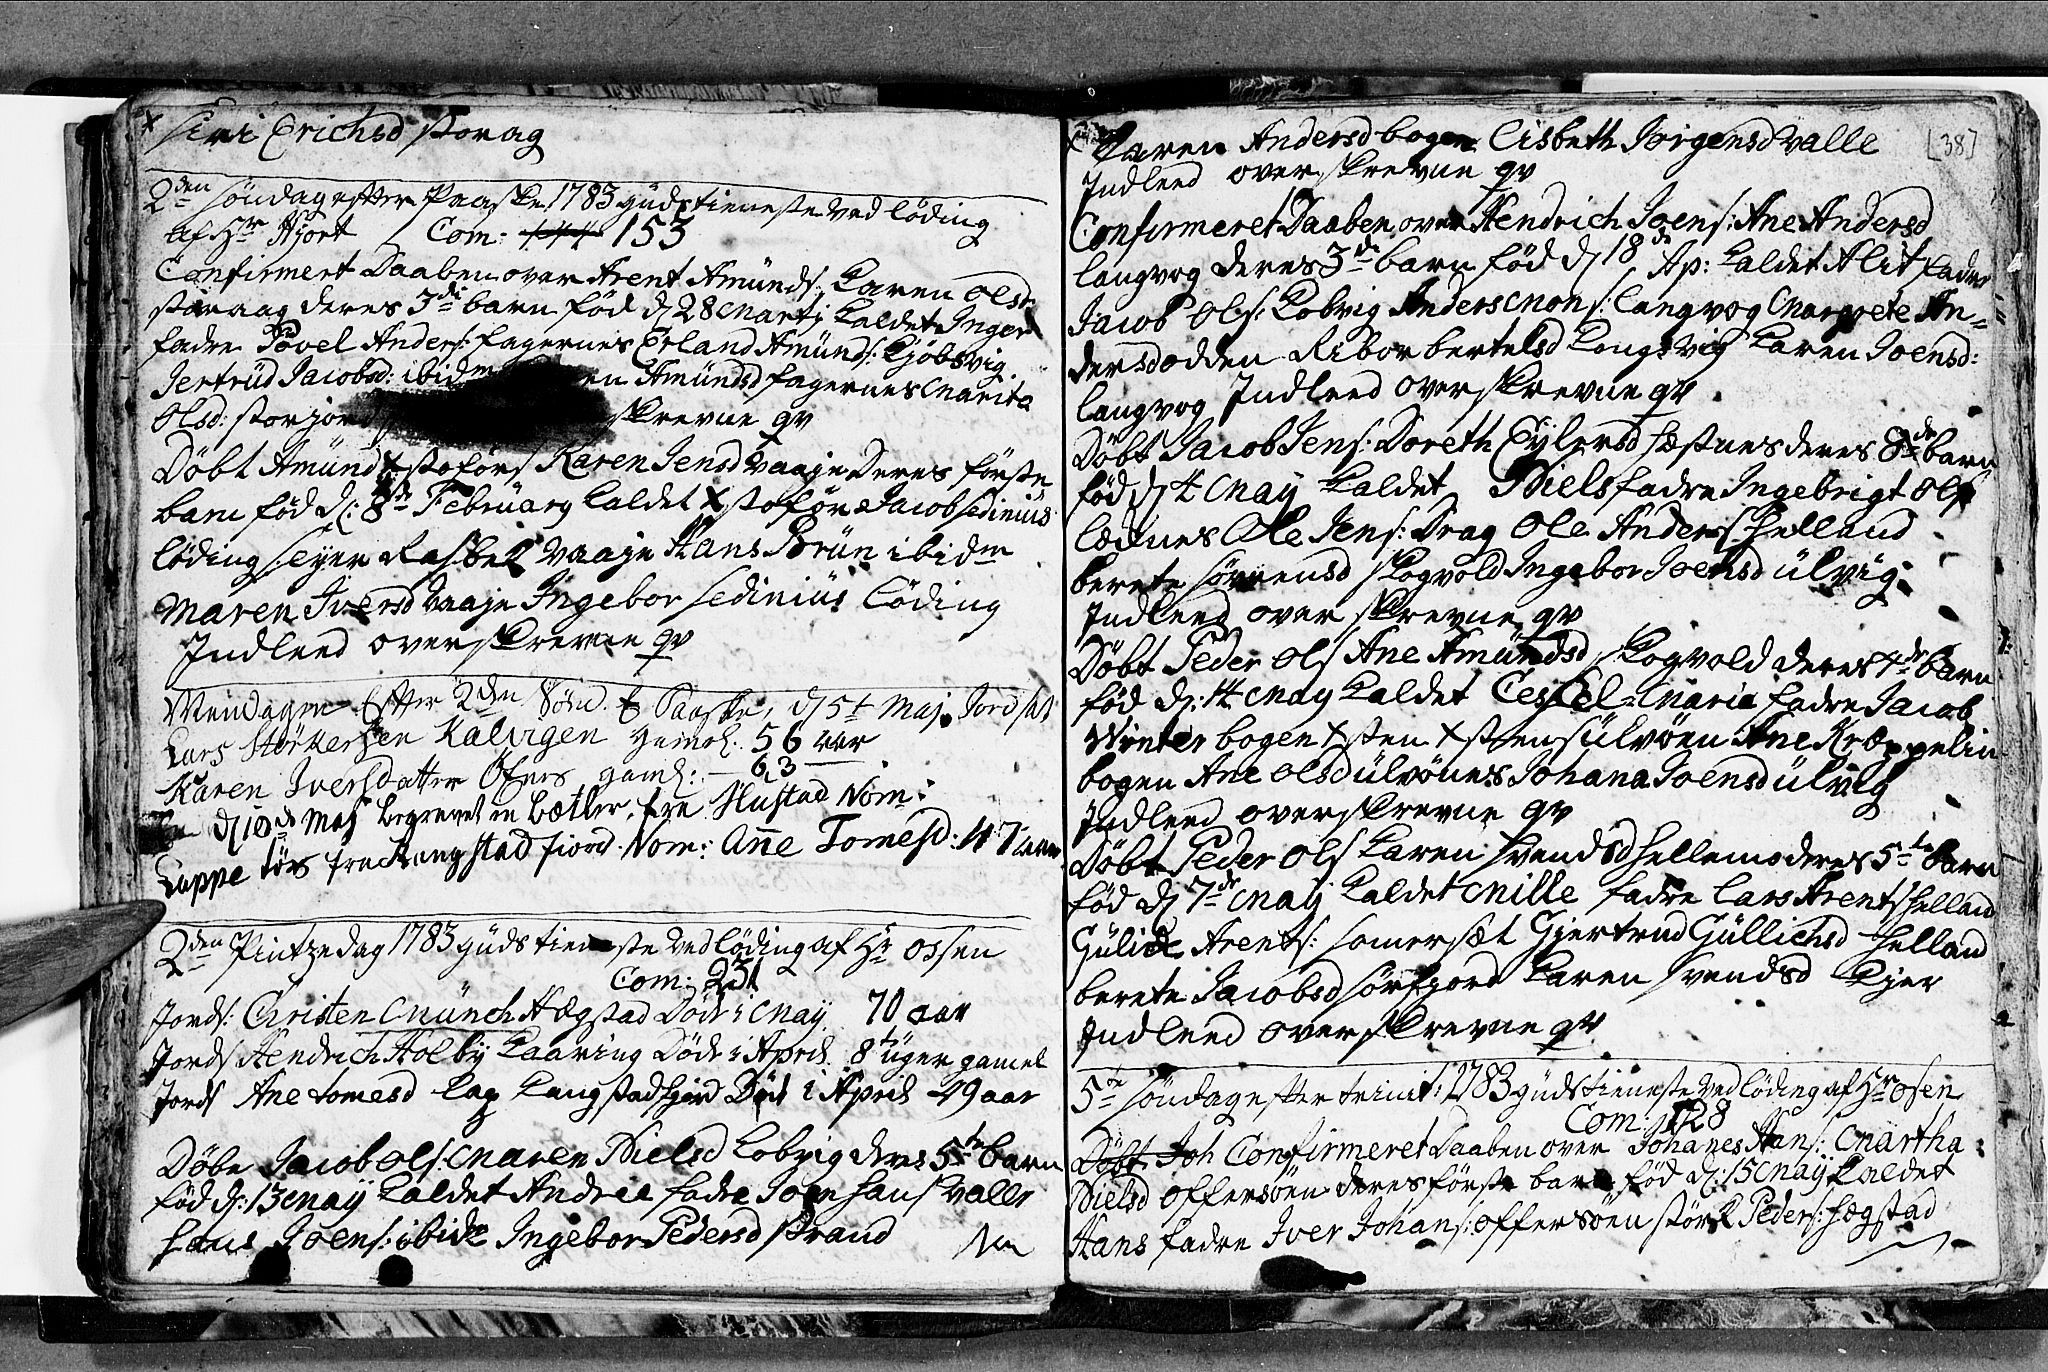 Siri Erichsd Storaag
2den Søndag efter Paaske 1783 Gudstieneste ved Løding
af Hr Hjort / Com: 153
Confirmert Daaben over Arent Amunds: Karen Olsd
Storaag deres 3die barn fød d 28 Martj kaldet Inger
fadre Povel Anders: Fagernes Erland Amunds: Kjøbsvig
Jertrud Jacobsd: ibidm Amundsd Fagernes Marita
Olsd: Storjord skrevne qv
Døbt Amund Xstofors Karen Jensd Vaaje Deres første
barn fød d: 8de Februarj kaldet Xstofor Jacob Sedinius
Løding Sejer Rasbek Vaaje Hans Brun ibidm
Maren Iversd Vaaje Ingebor Sedinius Løding
Indleed overskrevne qv
Mendagen Efter 2den Sønd. E Paaske, d 5t Maj. Jordfæst
Lars Størkersen Kalvigen gamel: 56 aar
Karen Iversdatter Ofers gamel: - 63
d 10de Maj begravet en Betler, fra Hustad Nom:
Lappe fra Nom: Anne Tomesd: 47 aar
2den Pintzedag 1783 Gudstieneste ved Løding af Hr Ossen
Com: 251
Jords: Christen Munch Hægstad Død i May 70 aar
Jords Hendrich Holby Kaaring Død i April 8t uger gamel
Jords Ane Tomesd Lap Død i April 49 aar
Døbt Jacob Ols: Maren Nielsd Kobvig deres 5te barn
fød d: 13 May kaldet Andrea fadre Joen Hans Valle
Hans Joens: ibidm Ingebor Pedersd Strand
[38]
Karen Andersd bogen Lisbeth Jørgensd Valle
Indleed overskrevne qv
Confirmeret Daaben over Hendrich Joens: Ane Andersd
Langvog deres 3de barn fød d 18de Ap: kaldet Alit fadre
Jacob Ols: Kobvig Anders Mons: Langvog Margrete An-
dersd odden Ribor bertelsd Kongsvig Karen Joensd:
Langvog Indleed overskrevne qv
Døbt Jacob Jens: Doreth Eylersd Hestnes deres 8de barn
fød d 4 May kaldet Niels fadre Ingebrigt Ols
Lædnes Ole Jens: Drag Ole Anders Helland
berete Sørensd Skogvold Ingebor Joensd Ulvig
Indleed overskrevne qv
Døbt Peder Ols Ane Amundsd Skogvold deres 4de barn
fød d: 14 May kaldet Maria fadre Jacob
Winter bogen Xsten Xstens Ulvøen Ane Kræppelin
bogen Ane Olsd Ulvønes Johana Joensd Ulvig
Indleed overskrevne qv
Døbt Peder Ols Karen Svendsd Hellemo deres 5te barn
fød d 7de May kaldet Mille fadre Lars Arents Helland
Gulich Arents: Somerset Gjertrud Gullichsd Helland
berete Jacobsd Sørfjord Karen Svendsd Kjer
Indleed overskrevne qv
5te Søndag efter trinit: 1783 Gudstieneste ved Løding af Hr Osen
Com: 128
Døbt Joh Confirmeret Daaben over Johanes Hans: Martha
Nielsd Offersøen deres første barn fød d: 15 May kaldet
Hans fadre Iver Johans: Offersøen Størk Peders: Hægstad